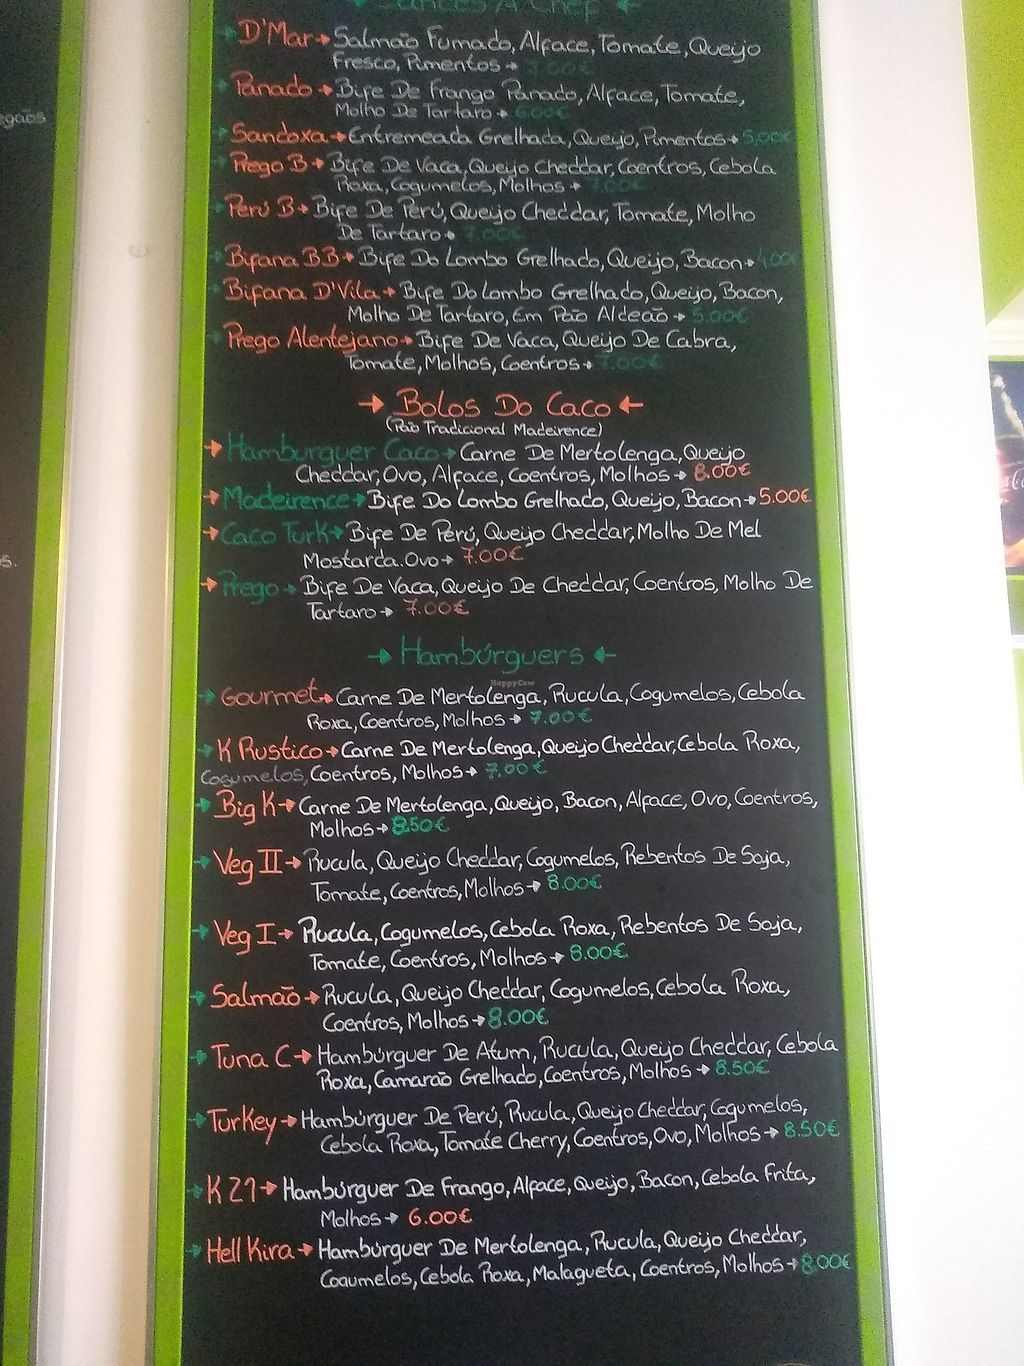 À Chef ←
→ D'Mar → Salmão Fumado, Alface, Tomate, Queijo
Fresco, Pimentos → 7.00€
→ Panado → Bife De Frango Panado, Alface, Tomate,
Molho De Tartaro → 6.00€
→ Sandoxa → Entremeada Grelhada, Queijo, Pimentos → 5,00€
→ Prego B → Bife De Vaca, Queijo Cheddar, Coentros, Cebola
Roxa, Cogumelos, Molhos → 7.00€
→ Perú B → Bife De Perú, Queijo Cheddar, Tomate, Molho
De Tartaro → 7.00€
→ Bifana BB → Bife Do Lombo Grelhado, Queijo, Bacon → 4.00€
→ Bifana D'Vila → Bife Do Lombo Grelhado, Queijo, Bacon,
Molho De Tartaro, Em Pão Aldeão → 5.00€
→ Prego Alentejano → Bife De Vaca, Queijo De Cabra,
Tomate, Molhos, Coentros → 7.00€
→ Bolos Do Caco ←
(Pão Tradicional Madeirence)
→ Hamburguer Caco → Carne De Mertolenga, Queijo
Cheddar, Ovo, Alface, Coentros, Molhos → 8.00€
→ Madeirence → Bife Do Lombo Grelhado, Queijo, Bacon → 5.00€
→ Caco Turk → Bife De Perú, Queijo Cheddar, Molho De Mel
Mostarda. Ovo → 7.00€
→ Prego → Bife De Vaca, Queijo De Cheddar, Coentros, Molho De
Tartaro → 7.00€
→ Hambúrguers ←
HappyCow
→ Gourmet → Carne De Mertolenga, Rucula, Cogumelos, Cebola
Roxa, Coentros, Molhos → 7.00€
→ K Rustico → Carne De Mertolenga, Queijo Cheddar, Cebola Roxa,
Cogumelos, Coentros, Molhos → 7.00€
→ Big K → Carne De Mertolenga, Queijo, Bacon, Alface, Ovo, Coentros,
Molhos → 8.50€
→ Veg II → Rucula, Queijo Cheddar, Cogumelos, Rebentos De Soja,
Tomate, Coentros, Molhos → 8.00€
→ Veg I → Rucula, Cogumelos, Cebola Roxa, Rebentos De Soja,
Tomate, Coentros, Molhos → 8.00€
→ Salmão → Rucula, Queijo Cheddar, Cogumelos, Cebola Roxa,
Coentros, Molhos → 8.00€
→ Tuna C → Hambúrguer De Atum, Rucula, Queijo Cheddar, Cebola
Roxa, Camarão Grelhado, Coentros, Molhos → 8.50€
→ Turkey → Hambúrguer De Perú, Rucula, Queijo Cheddar, Cogumelos,
Cebola Roxa, Tomate Cherry, Coentros, Ovo, Molhos → 8.50€
→ K 21 → Hambúrguer De Frango, Alface, Queijo, Bacon, Cebola Frita,
Molhos → 6.00€
→ Hell Kira → Hambúrguer De Mertolenga, Rucula, Queijo Cheddar,
Cogumelos, Cebola Roxa, Malagueta, Coentros, Molhos → 8.00€